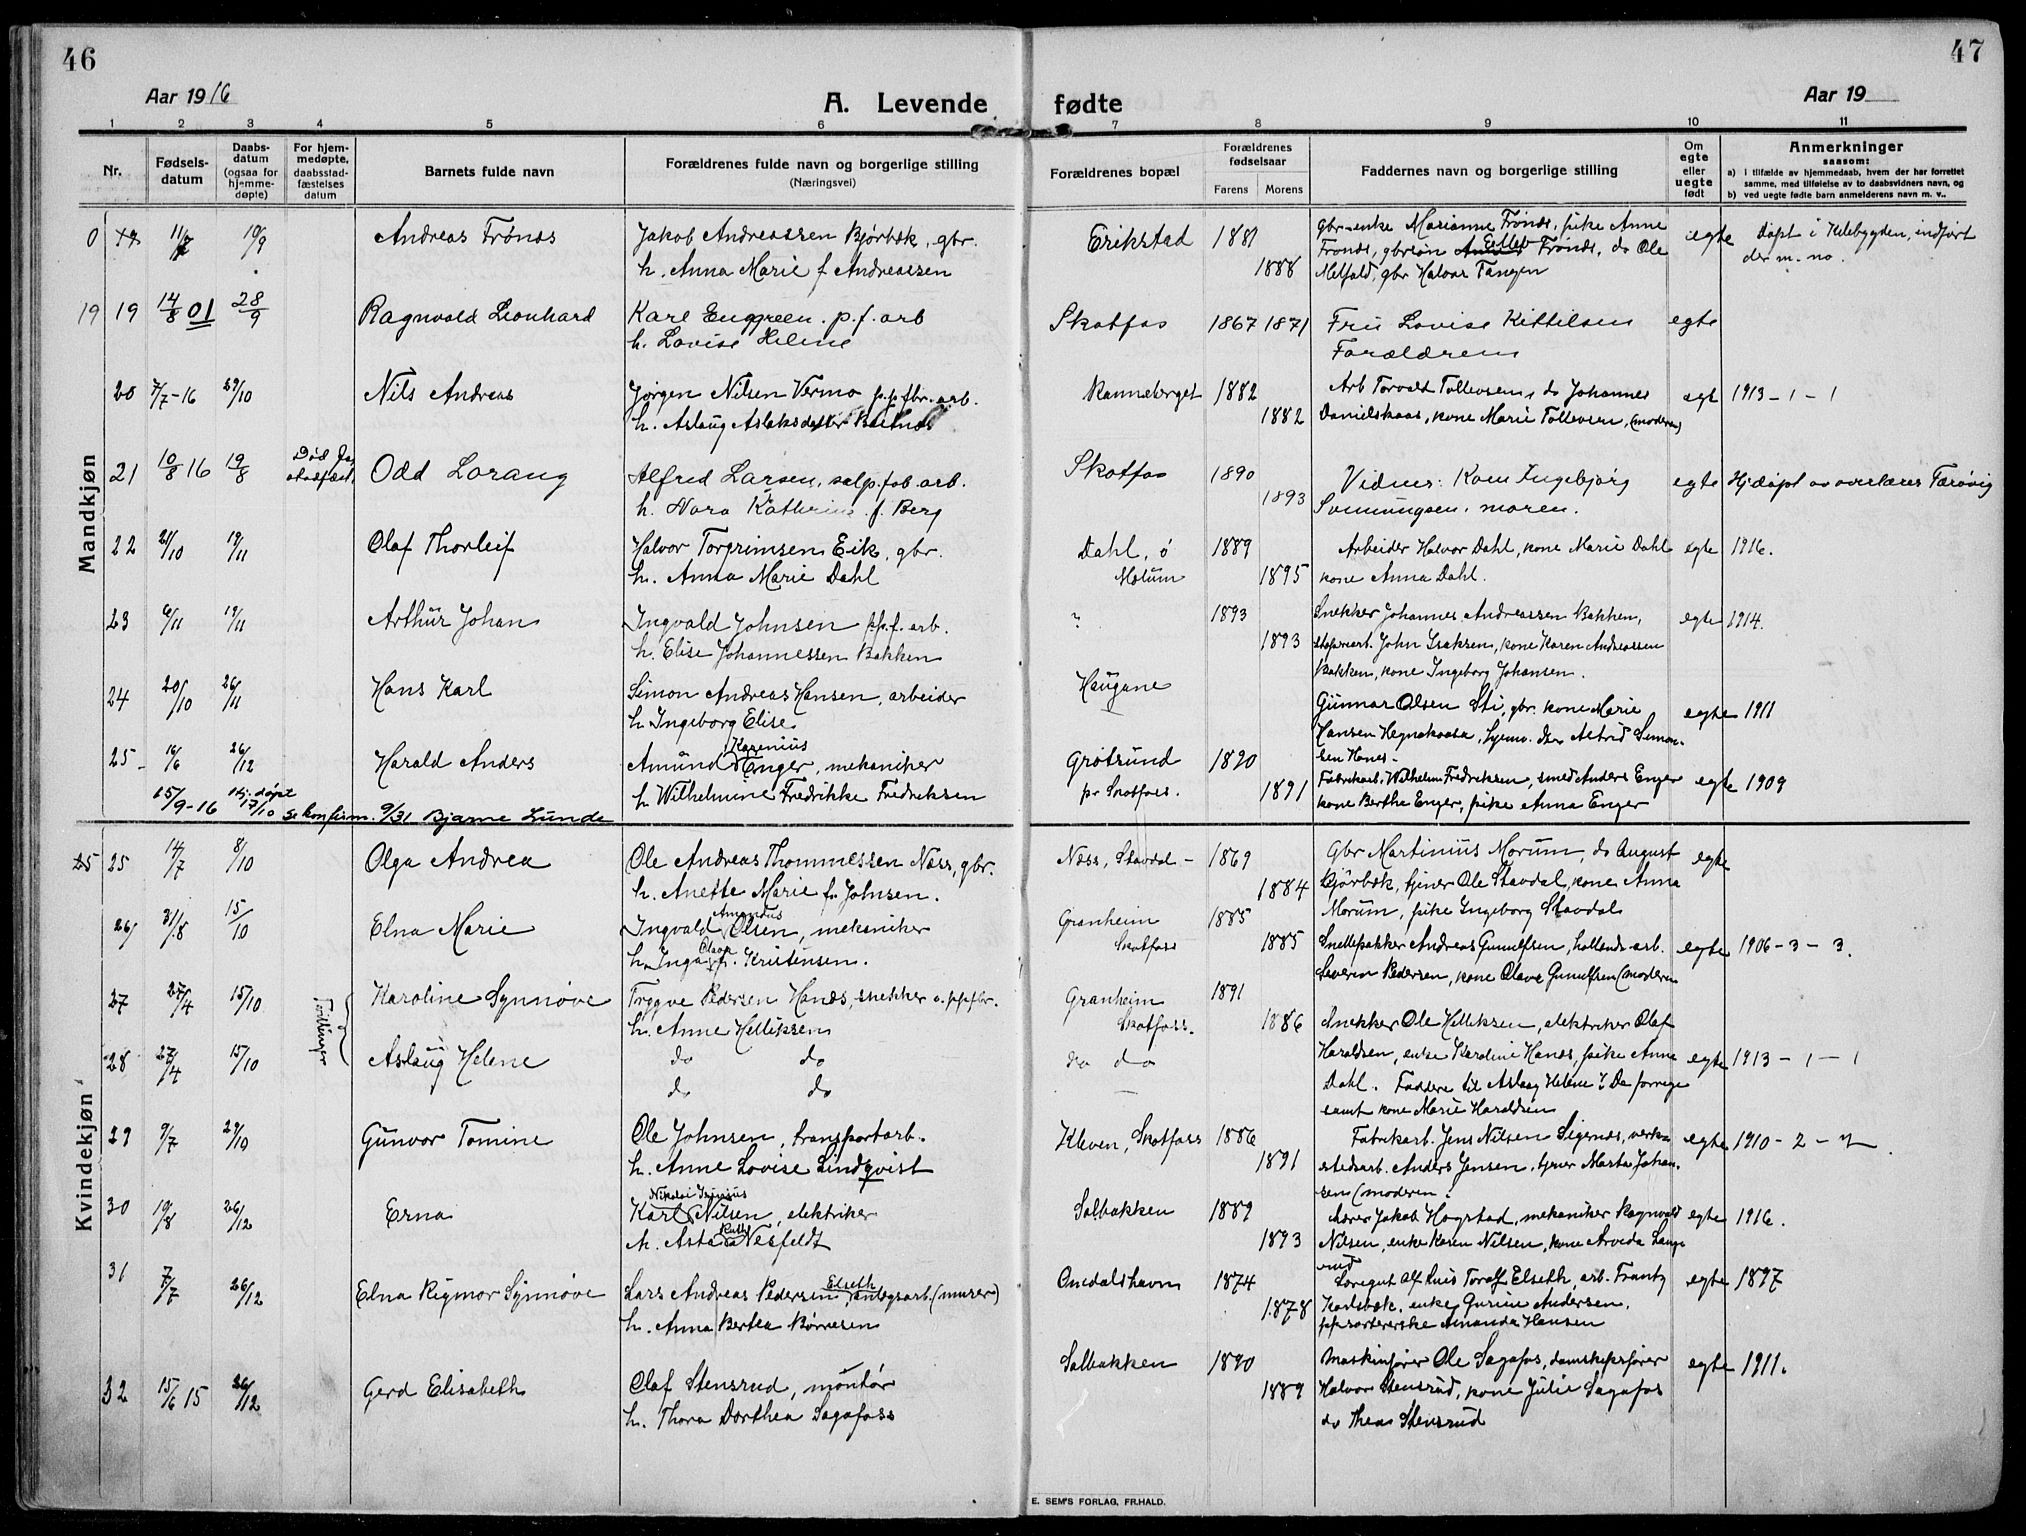 46
47
Aar 1916
A. Levende fødte
Aar 19
1 2 3 4 5 6 7 8 9 10 11
Nr.
Fødsels-datum
Daabs-datum (ogsaa for hjemme-døpte)
For hjem-medøpte, daabsstad-fæstelses datum
Barnets fulde navn
Forældrenes fulde navn og borgerlige stilling
(Næringsvei)
Forældrenes bopæl
Forældrenes fødselsaar
Farens Morens
Faddernes navn og borgerlige stilling
Om egte eller uegte født
Anmerkninger
saasom:
a) i tilfælde av hjemmedaab, hvem der har forrettet samme, med tilføielse av to daabsvidners navn, og
b) ved uegte fødte barn anmelderens navn m. v..
Mandkjøn
0 11/7 10/9 Andreas Frønes Jakob Andreassen Bjørbæk, gbr. Erikstad 1881 gbr.enke Marianne Frønes, pike Anne egte Døpt i Kilebygden, indført
h. Anna Marie f. Andreassen 1888 Frønes, gbrsøn Frønes, do Ole der m. no.
Melfald, gbr Halvor Tangen
19 19 14/8 01 28/9 Ragnvald Leonhard Karl Enggreen. p.f. arb Skotfos 1867 1871 Fru Lovise Kittilsen egte
h. Lovise Helene Forældrene
20 7/7-16 29/10 Nils Andreas Jørgen Nilsen Vermo p.p.fbr.arb. Ranneberget 1882 Arb Torvald Tollevsen, do Johannes egt 1913-1-1
h. Aslaug Aslaksdatter 1882 Danielskaas, kone Marie Tollevsen, (moderen)
21 10/8 16 19/8 Død Odd Lorang Alfred Larsen, salp.fab.arb. Skotfos 1890 Vidner: Kone Ingebjørg egte Hj.døpt av overlærer Færøvig
h. Nora Kathrine f. Berg 1893 Sonnungsen. moren.
22 21/10 19/11 Olaf Thorleif Halvor Torgrimsen Eik, gbr. Dahl, ø 1889 Arbeider Halvor Dahl, kone Marie Dahl egte 1916.
h. Anna Marie Dahl Melum 1895 kone Anna Dahl.
23 6/11 19/11 Arthur Johan Ingvald Johnsen p.p.f. arb. ? 1893 Snekker Johannes Andreassen Bakken, egte 1914.
h. Elise Johannessen Bakken 1893 John Isaksen, kone Karen Andreassen
Bakken, kone Ingeborg Johansen.
24 20/10 26/11 Hans Karl Simon Andreas Hansen, arbeider Haugane Gunnar Olsen Sti, gbr. kone Marie egte 1911
h. Ingeborg Elise. Hansen Astrid Simon-
sen Hanes.
25 16/6 26/12 Harald Anders Amund Karenius Enger, mekaniker Grøtsund 1890 Fabrikarb. Wilhelm Fredriksen, smed Anders Enger egte 1909
h. Wilhelmine Fredrikke Fredriksen pr Skotfoss. 1891 kone Berthe Enger, pike Anna Enger
15/9-16 hj. døpt 17/10 se konfirm. 9/31 Bjarne Lunde
Kvindekjøn
25 25 14/7 8/10 Olga Andrea Ole Andreas Thommessen Næss, gbr. Næss, Stavdal 1869 Gbr Martinius Morum, do August egte
h. Anette Marie f. Johnsen. 1884 Bjørbæk, tjener Ole Stavdal, kone Anna
Morum, pike Ingeborg Stavdal
26 31/8 15/10 Elna Marie Ingvald Amandus Olsen, mekaniker Granheim 1885
h. Inga Olava f. Kristensen. Skotfoss 1885 Snellepakker Andreas Gunulfsen, hollendr.arb. egte 1906-3-3.
Severin Pedersen, kone Olava Gunulfsen (moderen
27 27/4 15/10 Tvillinger Karoline Synnøve Trygve Pedersen Hanes, snekker v. ppfbr. Granheim 1891
h. Anne Helliksen Skotfoss. 1886 Snekker Ole Helliksen, elektriker Olaf
28 27/4 15/10 Aslaug Helene do do do do Haraldsen, enke Karoline Hanes, pike Anne egte 1913-1-1
do do Dahl. Faddere til Aslaug Helene: De forrige
samt kone Marie Haraldsen
29 9/7 29/10 Gunvor Tomine Ole Johnsen, transportarb. Kleven, Skotfoss 1886 Fabrikarb. Jens Nilsen Sigernes, verk- egte 1910-2-
h. Anne Lovise Lindqvist 1891 stedsarb. Anders Jensen, tjener Marta Johan-
sen (moderen.
30 19/8 26/12 Erna Karl Nikolai Nilsen, elektriker Solbakken 1889 Jakob Hogstad, mekaniker Ragnvald egte 1916.
h. Asta Vesfeldt 1893 Nilsen, enke Karen Nilsen, kone Arveda Lange
rud
31 7/7 26/12 Elna Rigmor Synnøve Lars Andreas Pedersen Elseth, (murer) Omdalshavn 1874 Toralf Elseth, arb. Frantz egte 1897
h. Anna Berthea Børresen 1878 Karlsbæk, enke Gurine Andersen,
Amanda Hansen
32 15/6 15 26/12 Gerd Elisabeth Olaf Stensrud, montør Solbakken 1890 Maskinfører Ole Sagafos, damskipsfører egte 1911.
h. Thora Dorthea Sagafoss 1889 Halvor Stensrud, kone Julie Sagafos
do Thea Stensrud
E. SEM'S FORLAG, FR.HALD.